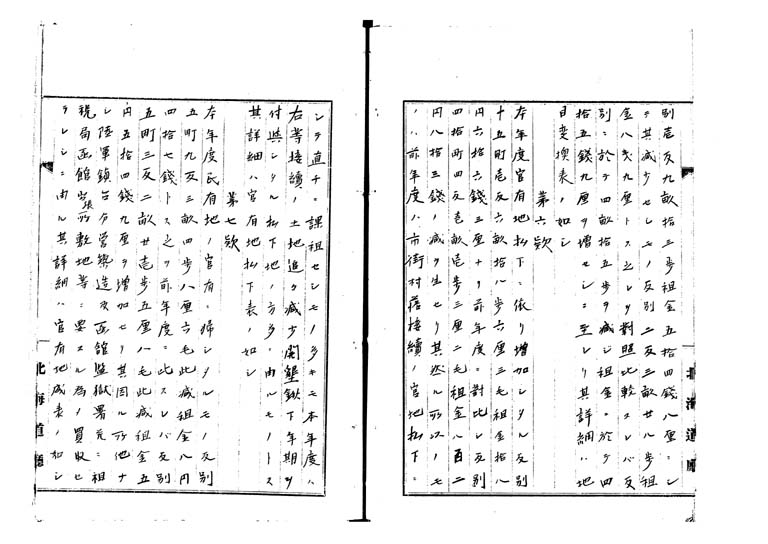 別壱反九畝拾三歩租金五拾四銭八厘ニシ
テ其減少セシモノ反別二反三畝廿八歩租
金八銭九厘トス之レヲ対照比較スレバ反
別ニ於テ四畝拾五歩ヲ減ジ租金ニ於テ四
拾五銭九厘ヲ増セシニ至レリ其詳細ハ地
目変換表ノ如シ
第六款
本年度官有地払下ニ依リ増加シタル反別
十五町壱反六畝拾八歩六厘三毛租金拾八
円六拾六銭三厘ナリ前年度ニ対比シ反別
四拾町四反壱畝壱歩三厘二毛租金八百二
円八拾三銭ノ減ヲ生セリ其然ル所以ノモ
ノハ前年度ハ市街村落接続ノ官地払下ニ
シテ直チニ課租セシモノ多キモ本年度ハ
右等接続ノ土地追々減少開墾鍬下年期ヲ
付与シタル払下地ノ方多キニ由ルモノトス
其詳細ハ官有地払下表ノ如シ
第七款
本年度民有地ノ官有ニ帰シタルモノ反別
五町九反三畝四歩八厘六毛此減租金八円
四拾七銭トス之ヲ前年度ニ比スレバ反別
五町三反二畝廿壱歩五厘八毛此減租金五
円五拾四銭九厘ヲ増加セリ其因ル所他ナ
シ陸軍鎮台分営築造及函館監獄署并ニ租
税局函館出張所敷地等ニ要スル為メ買収セ
ラレシニ由ル其詳細ハ官有地成表ノ如シ
北海道庁
北海道庁